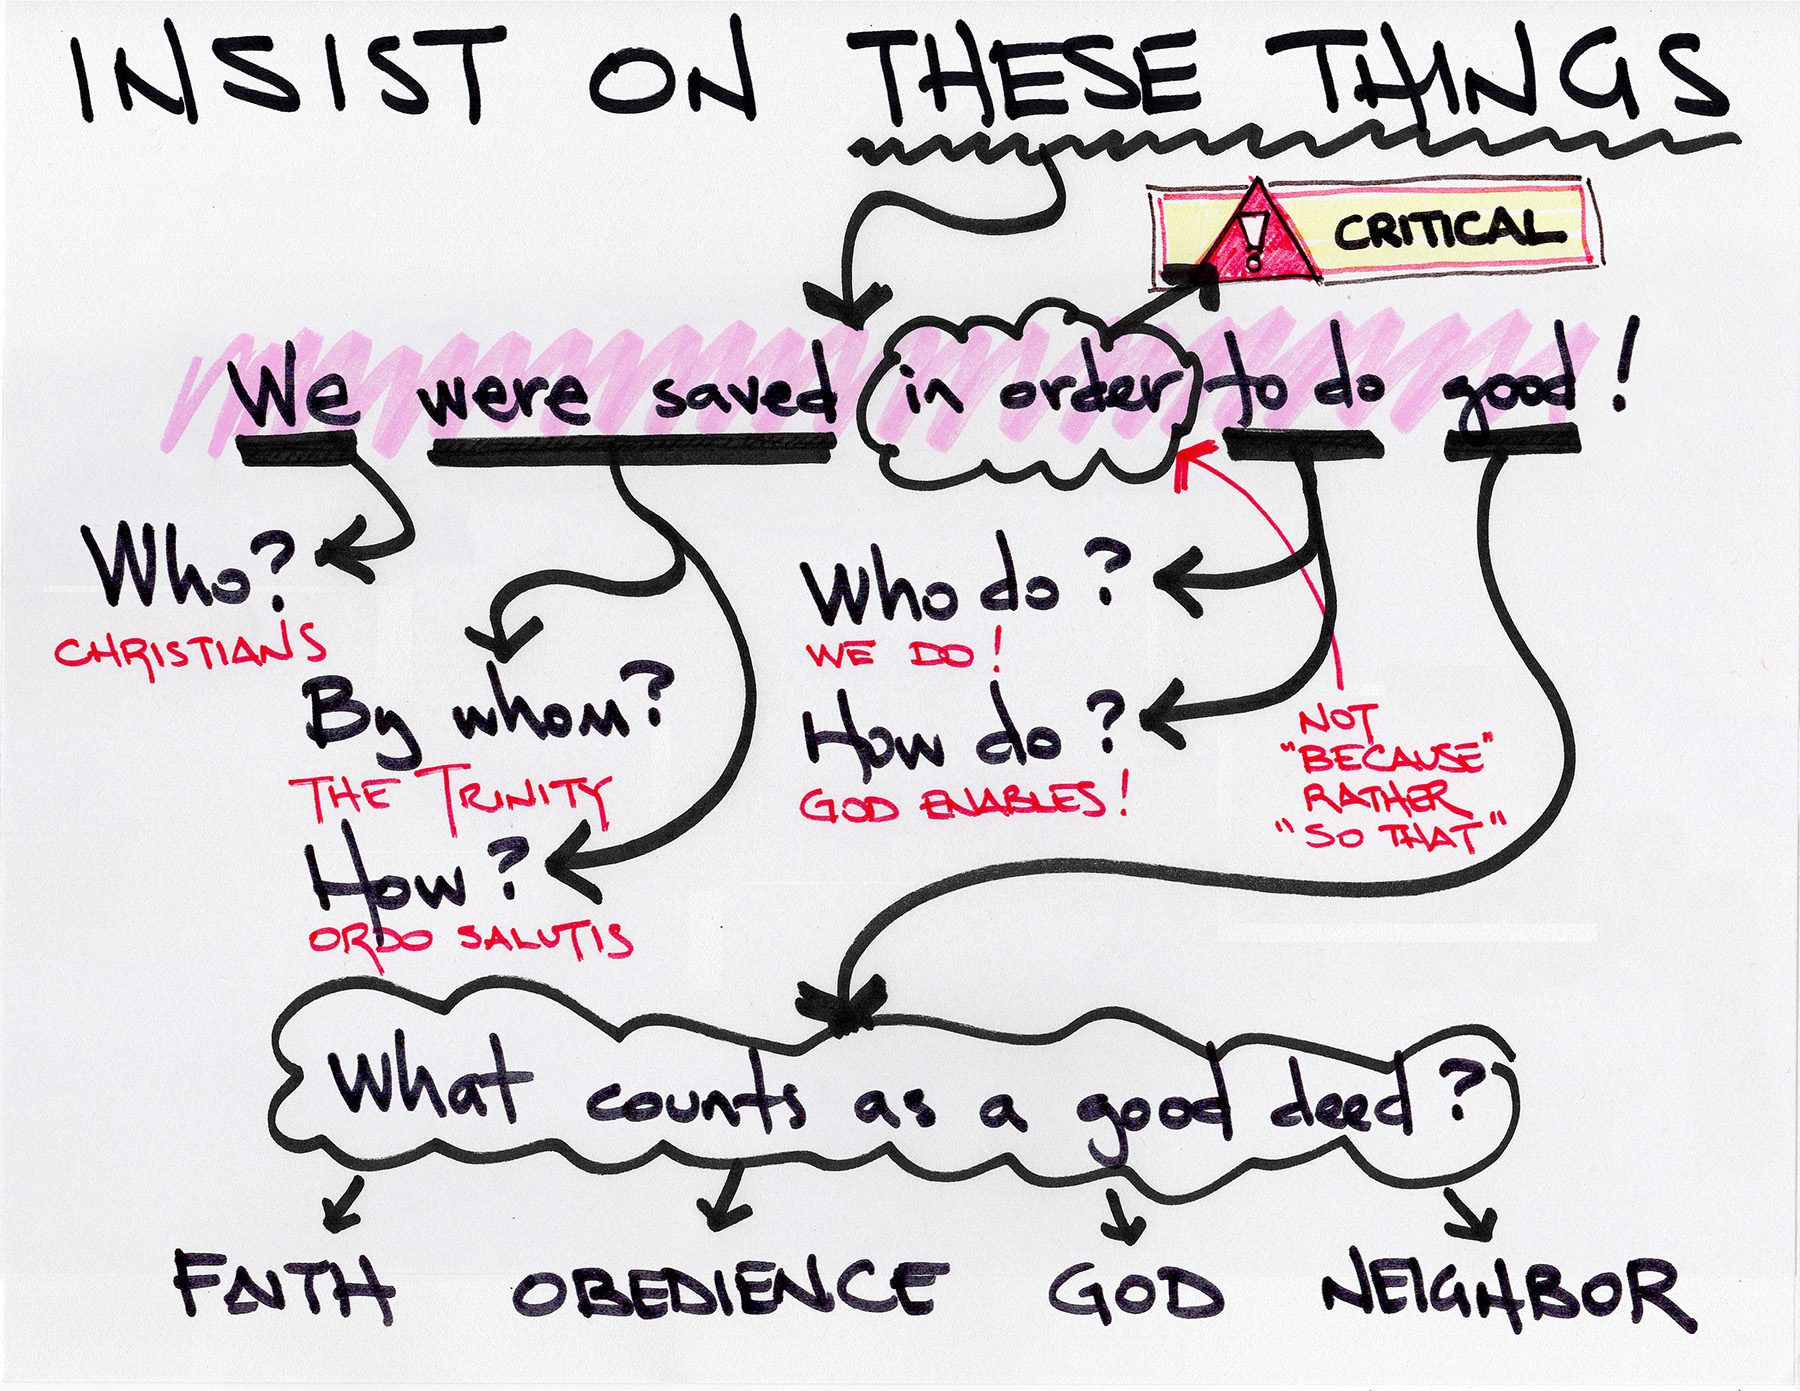 INSIST ON THESE THINGS
! CRITICAL
We were saved in order to do good!
Who?
CHRISTIANS
By whom?
THE TRINITY
How?
ORDO SALUTIS
Who do?
WE DO!
How do?
GOD ENABLES!
NOT
"BECAUSE"
RATHER
"SO THAT"
What counts as a good deed?
FAITH OBEDIENCE GOD NEIGHBOR